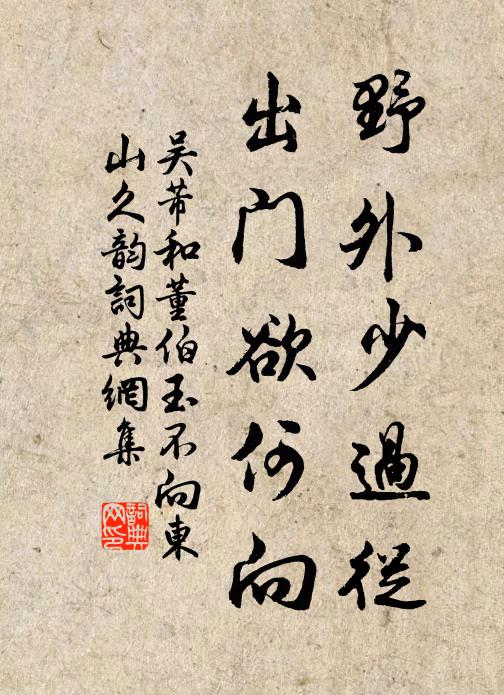 野外少過從
出门欲何向
吴芾和董伯玉不向東
山久韵詞典網集
詞典網印